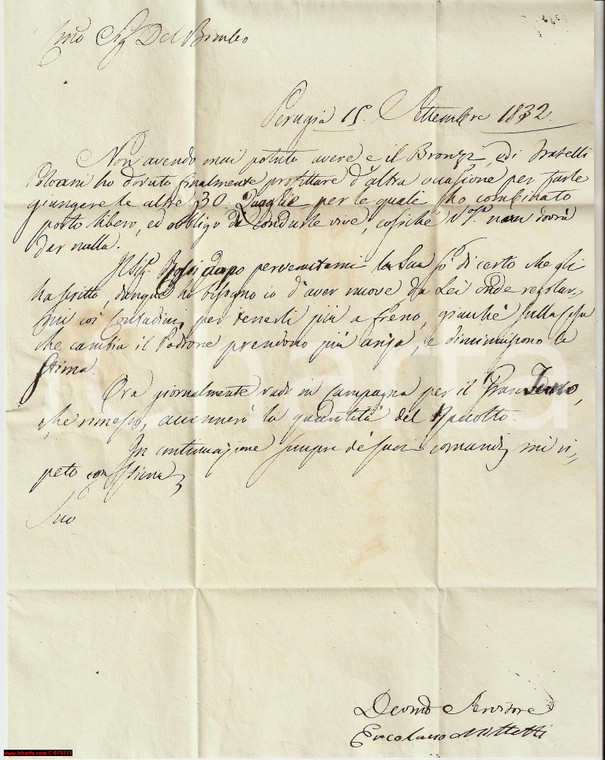 Sig Del Bimbo
Perugia 15. Settembre 1832.
Non avendo mai potuto avere e il Bronzi, ed i Fratelli
ho dovuto finalmente profittare d'altra occasione per farle
giungere le altre 30. Quaglie per le quali ho combinato
porto libero, ed obbligo di condurle vive, cosiché non dovrà
dar nulla.
Il Sig. dopo pervenutami la Sua so di certo che gli
ha scritto, dunque ho bisogno io d'aver nuove da Lei onde regolar,
mi coi Contadini, per tenerli più a freno, giacché sulla scusa
che cambia il Padrone prendono più ansa, e diminuiscono la
Stima.
Ora giornalmente vado in campagna per il Gran Turco,
che rimesso, accennerò la quantità del Raccolto.
In continuazione sempre de' suoi comandi, mi ri,
peto con Stima
Suo
Devmo Servitore
Ercolano
www.isharta.com